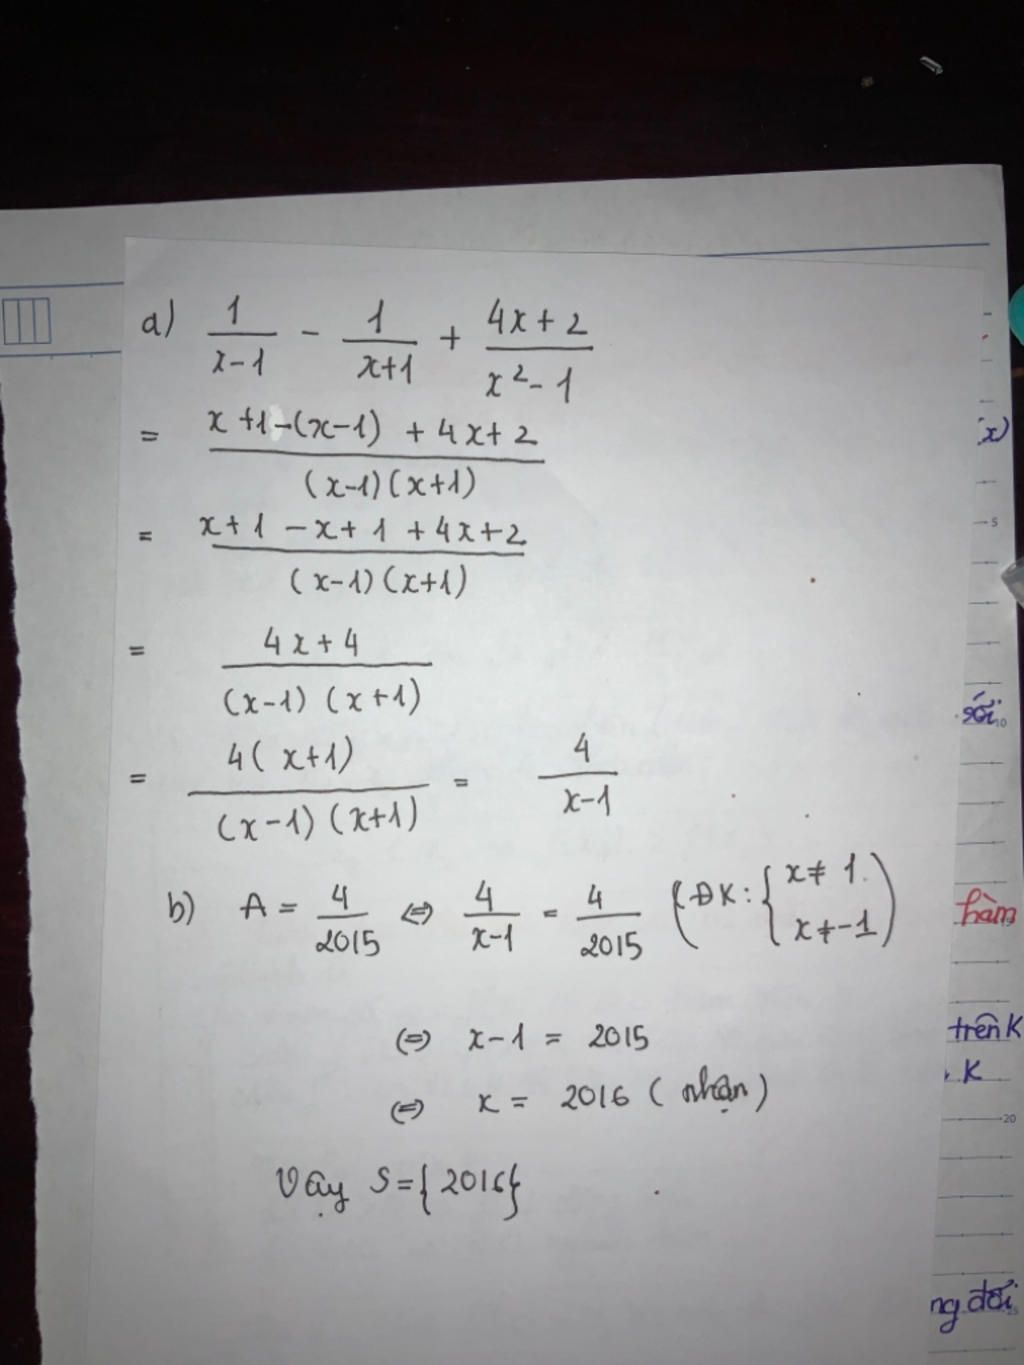 a) 1/(x-1) - 1/(x+1) + (4x+2)/(x²-1)
= (x+1-(x-1)+4x+2)/((x-1)(x+1))
= (x+1-x+1+4x+2)/((x-1)(x+1))
= (4x+4)/((x-1)(x+1))
= 4(x+1)/((x-1)(x+1)) = 4/(x-1)
b) A = 4/2015 ⇔ 4/(x-1) = 4/2015 (ĐK: { x≠1. x≠-1)
⇔ x-1 = 2015
⇔ x = 2016 (nhận)
Vậy S={2016}
x)
5
sối
10
hàm
trên K
K
20
ng đối
25